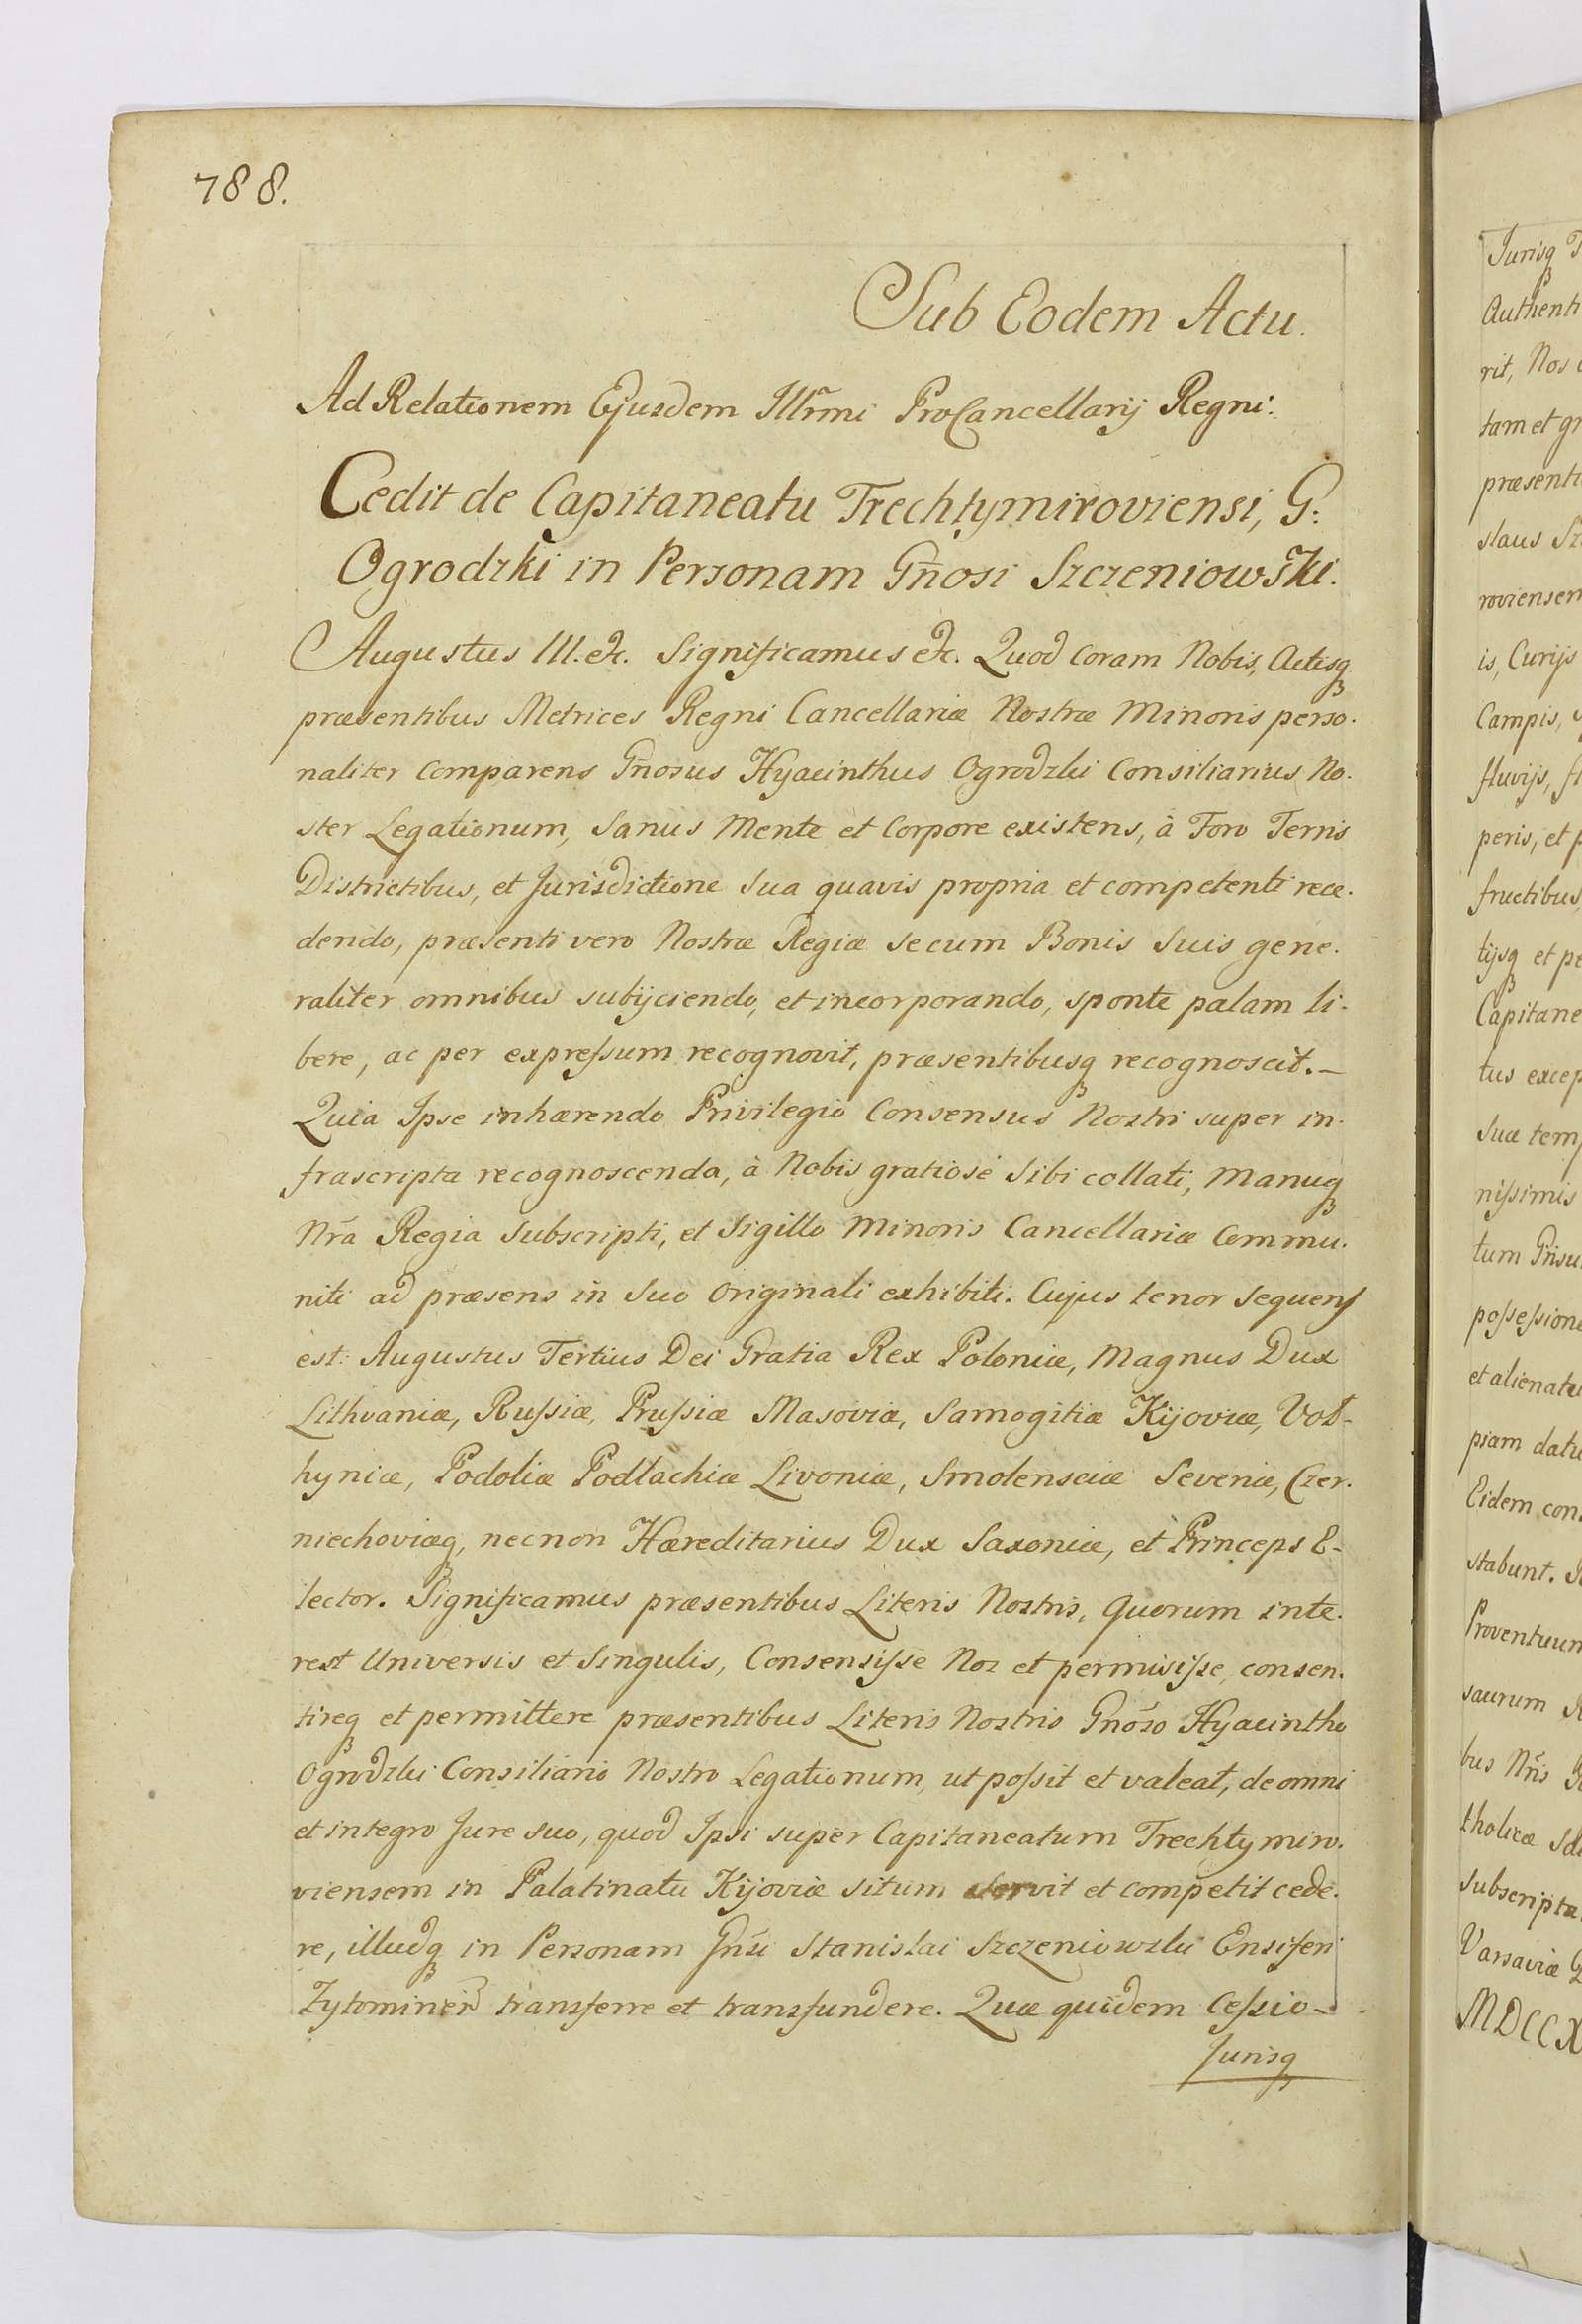 788.
Sub Eodem Actu.
Ad Relationem Ejusdem Illr̃mi ProCancellarij Regni:
Cedit de Capitaneatu Trechtymiroviensi, G:
Ogrodzki in Personam Gñosi Szczeniowski.
Augustus III. etc. Significamus etc. Quod coram Nobis, Actisq
præsentibus Metrices Regni Cancellariæ Nostræ Minoris perso-
naliter comparens Gñosus Hyacinthus Ogrodzki Consiliarius No-
ster Legationum, Sanus Mente et Corpore existens, à Foro Terris
Districtibus, et Jurisdictione Sua quavis propria et competenti rece-
dendo, præsenti vero Nostræ Regiæ se cum Bonis Suis gene-
raliter omnibus subijciendo, et incorporando, sponte palam li-
bere, ac per expressum recognovit, præsentibusq recognoscit. –
Quia Ipse inhærendo Privilegio Consensus Nostri super in-
frascripta recognoscenda, à Nobis gratiosè Sibi collati, Manuq
Nr̃a Regia Subscripti, et Sigillo Minoris Cancellariæ Commu-
niti ad præsens in Suo Originali exhibiti. Cujus tenor sequens
est: Augustus Tertius Dei Gratia Rex Poloniæ, Magnus Dux
Lithvaniæ, Russiæ, Prussiæ Masoviæ, Samogitiæ Kijoviæ, Vol-
hyniæ, Podoliæ Podlachiæ Livoniæ, Smolensciæ Severiæ, Czer-
niechoviæq, necnon Hæreditarius Dux Saxoniæ, et Princeps E-
lector. Significamus præsentibus Literis Nostris, quorum inte-
rest Universis et Singulis, Consensisse Nos et permisisse, consen-
tireq et permittere præsentibus Literis Nostris Gnõso Hyacintho
Ogrodzki Consiliario Nostro Legationum, ut possit et valeat, de omni
et integro Jure suo, quod Ipsi super Capitaneatum Trechtymiro-
viensem in Palatinatu Kijoviæ situm servit et competit cede-
re, illudq in Personam Gñsi Stanislai Szczeniowski Ensiferi
transferre et transfundere. Quæ quidem Cessio –
Jurisq
Jurisq
Authenti
rit, Nos
tam et gr
præsenti
slaus Sz
roviensem
is, Curijs
Campis,
fluvijs, fl
peris, et p
fructibus,
tijsq et pe
Capitane
tus excep
Suæ temp
nissimis
tum Gñsu
possessione
et alienatu
piam datu
Eidem con
stabunt.
Proventuum
saurum
bus Nr̃is
tholicæ
Subscripta
Varsaviæ
MDCCX